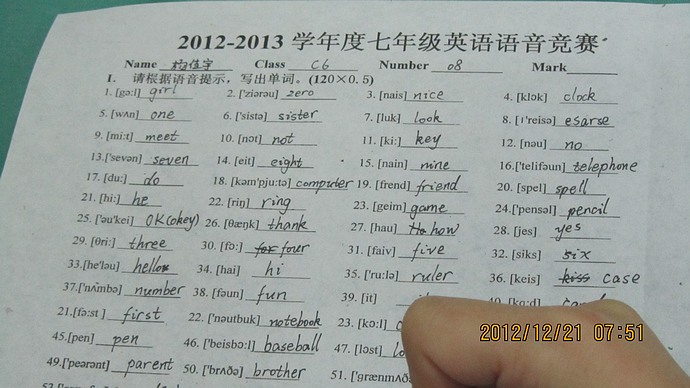 2012-2013 学年度七年级英语语音竞赛
Name 杨佳宇 Class C6 Number 08 Mark
I. 请根据语音提示，写出单词。(120×0.5)
1. [gə:l] girl 2. ['ziərəu] zero 3. [nais] nice 4. [klɔk] clock
5. [wʌn] one 6. ['sistə] sister 7. [luk] look 8. [ɪ'reisə] esarse
9. [mi:t] meet 10. [nɔt] not 11. [ki:] key 12. [nəu] no
13.['sevən] seven 14. [eit] eight 15. [nain] nine 16.['telifəun] telephone
17. [du:] do 18. [kəm'pju:tə] computer 19. [frend] friend 20. [spel] spell
21. [hi:] he 22. [riŋ] ring 23. [geim] game 24.['pensəl] pencil
25. ['əu'kei] OK(okey) 26. [θæŋk] thank 27. [hau] how 28. [jes] yes
29. [θri:] three 30. [fɔ:] four 31. [faiv] five 32. [siks] six
33.[he'ləu] hello 34. [hai] hi 35. ['ru:lə] ruler 36. [keis] kiss case
37.['nʌmbə] number 38. [fəun] fun 39. [it]
21. [fə:st] first 22. ['nəutbuk] notebook 23. [kɔ:l]
45.[pen] pen 46. ['beisbɔ:l] baseball 47. [lɔst]
49.['peərənt] parent 50. ['brʌðə] brother 51. ['grænmʌ
2012/12/21 07:51